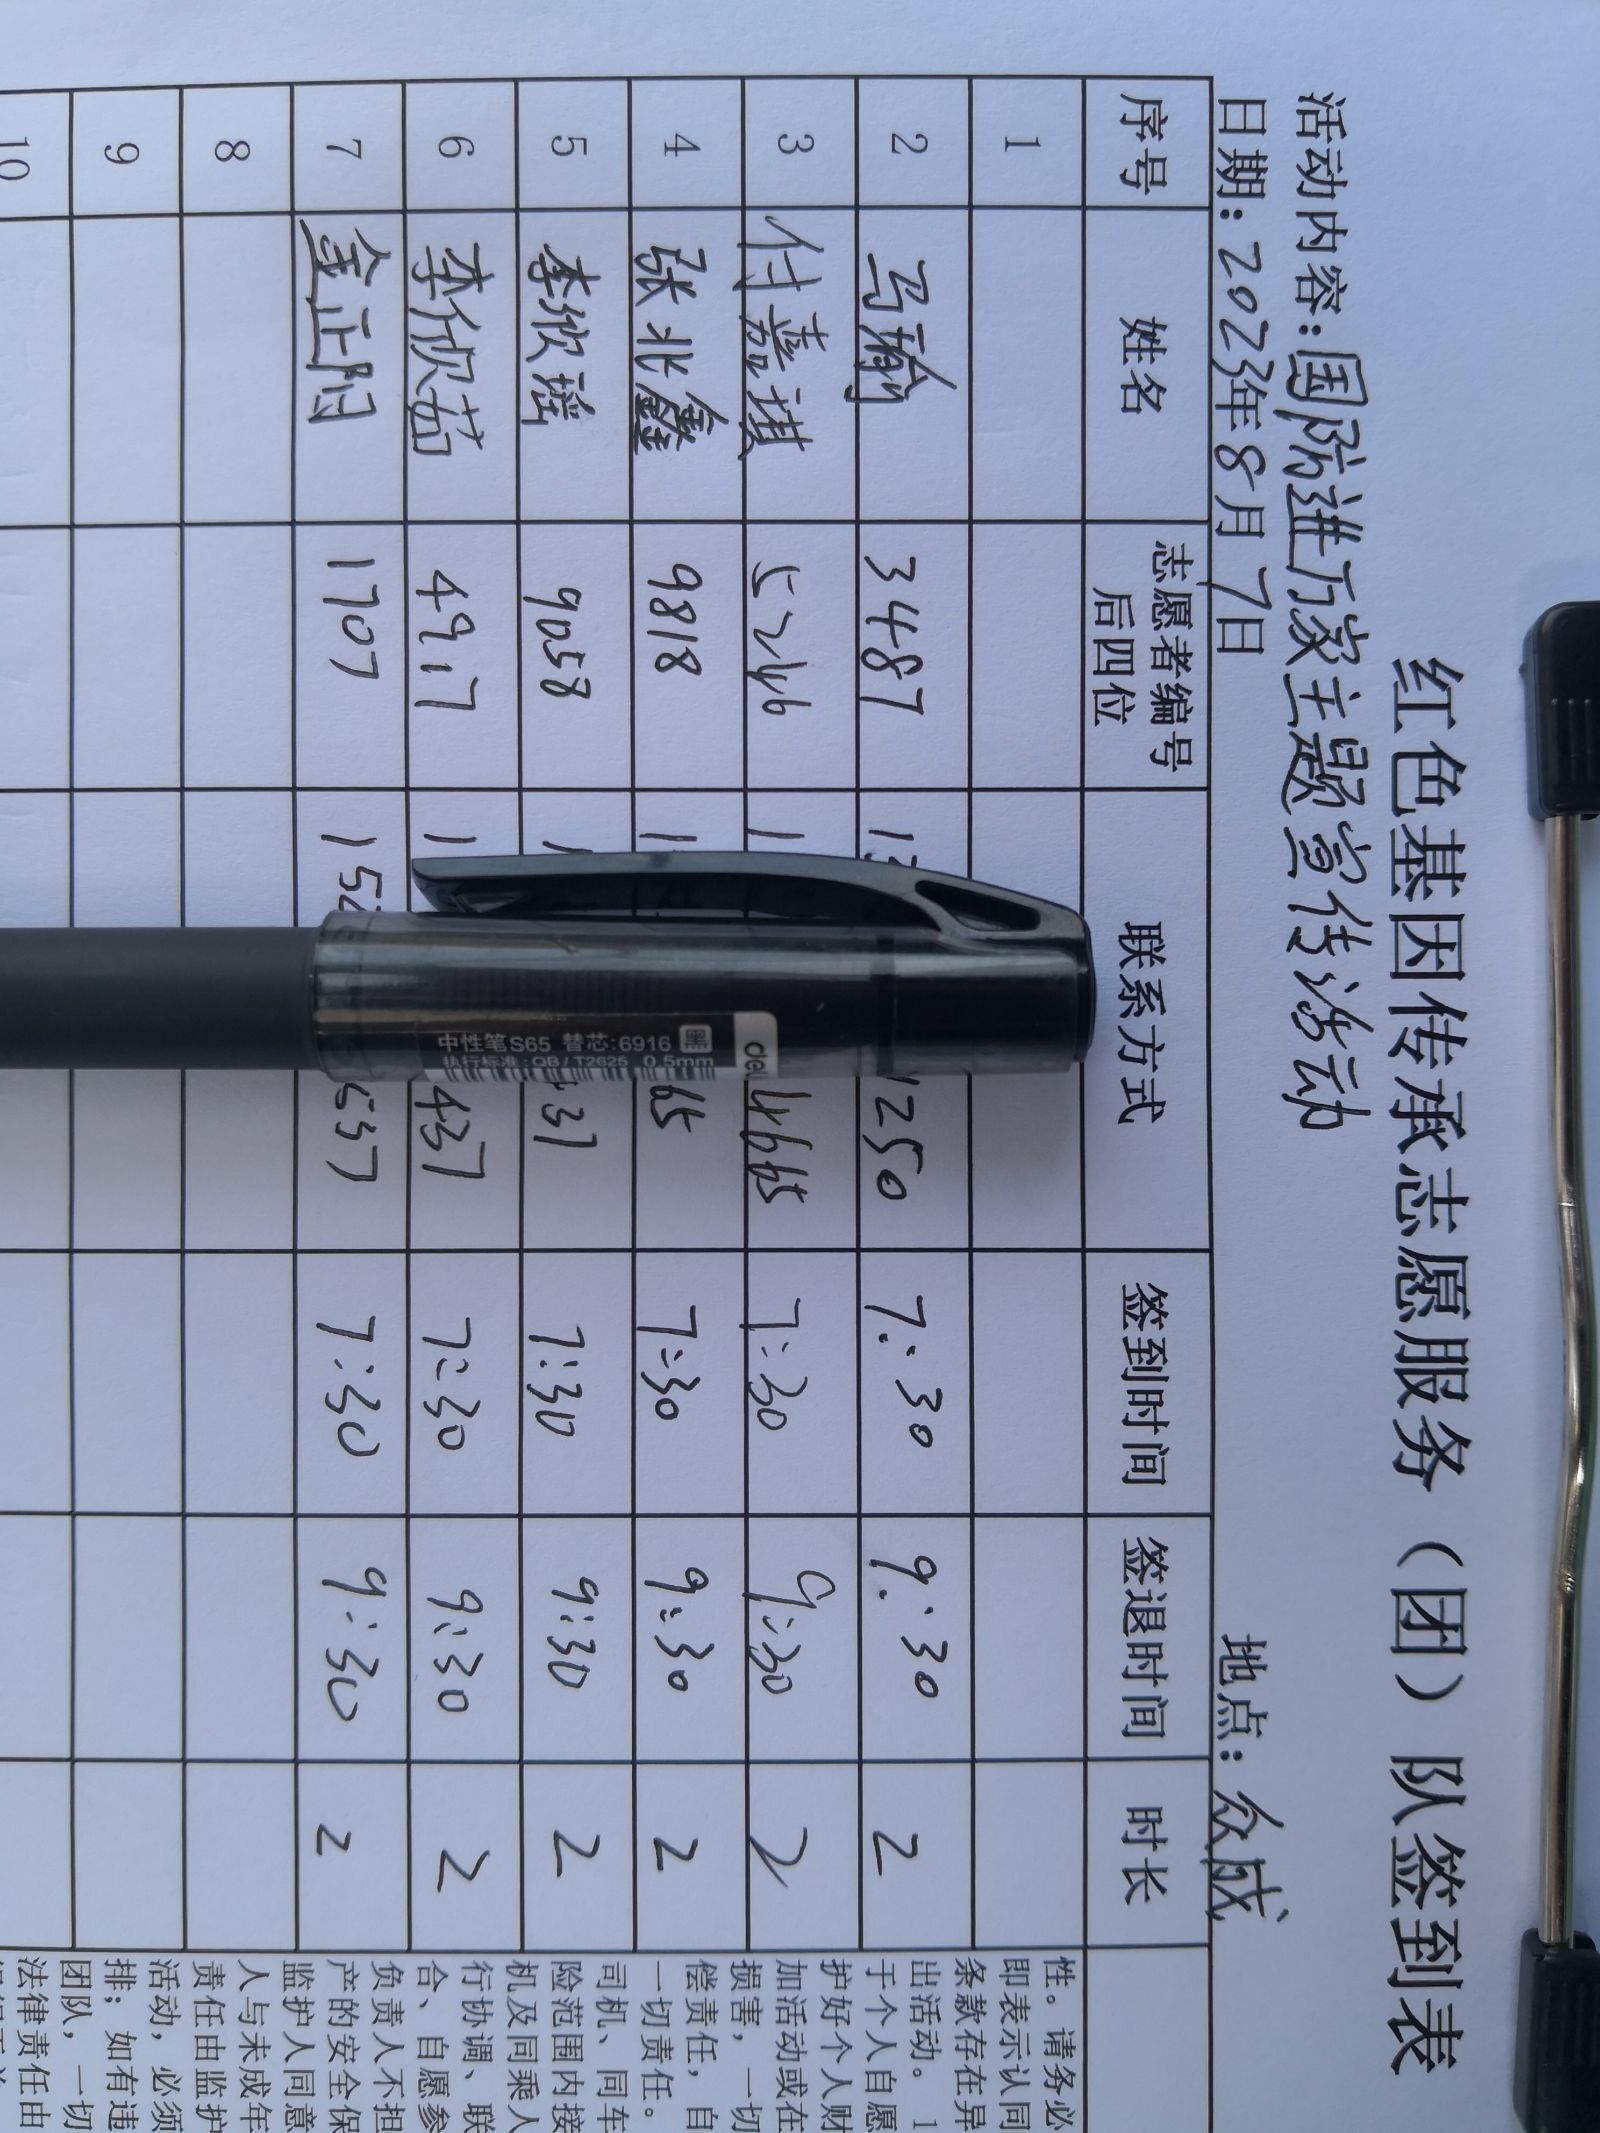 红色基因传承志愿服务（团）队签到表
活动内容：国防进万家主题宣传活动
日期：2023年8月7日 地点：众成
序号 姓名 志愿者编号后四位 联系方式 签到时间 签退时间 时长
1
2 马瀚 3487 1250 7:30 9:30 2
3 付嘉琪 5246 1 4665 7:30 9:30 2
4 张兆鑫 9818 1 65 7:30 9:30 2
5 李欣瑶 9058 1 31 7:30 9:30 2
6 李欣茹 4917 1 437 7:30 9:30 2
7 金正阳 1707 15 537 7:30 9:30 2
8
9
10
性。请务必
即表示认同
条款存在异
出活动。1
于个人自愿
护好个人财
加活动或在
损害，一切
偿责任，自
一切责任。
司机、同车
险范围内接
机及同乘人
行协调、联
合、自愿参
负责人不担
产的安全保
监护人同意
人与未成年
责任由监护
活动，必须
排；如有违
团队，一切
法律责任由
中性笔S65 替芯:6916 黑
执行标准:QB/T2625 0.5mm
del